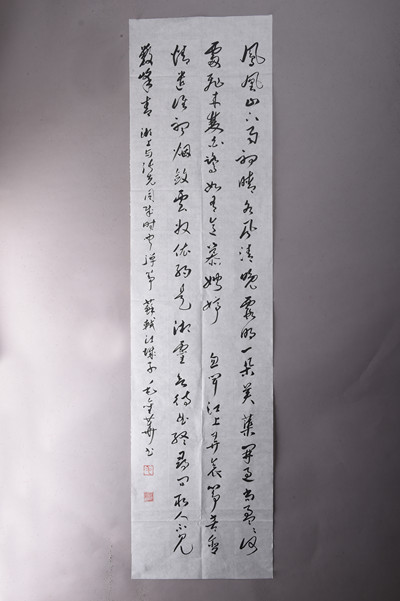 鳳凰山下雨初晴水风清晚霞明一朵芙蕖開過尚盈盈何
處飛来雙白鹭如有意慕娉婷 忽聞江上弄哀筝苦含
情遣谁聽烟敛雲收依约是湘靈欲待曲終尋問取人不見
數峰青 湖上与张先同賦时聞弹筝 蘇軾江城子 書